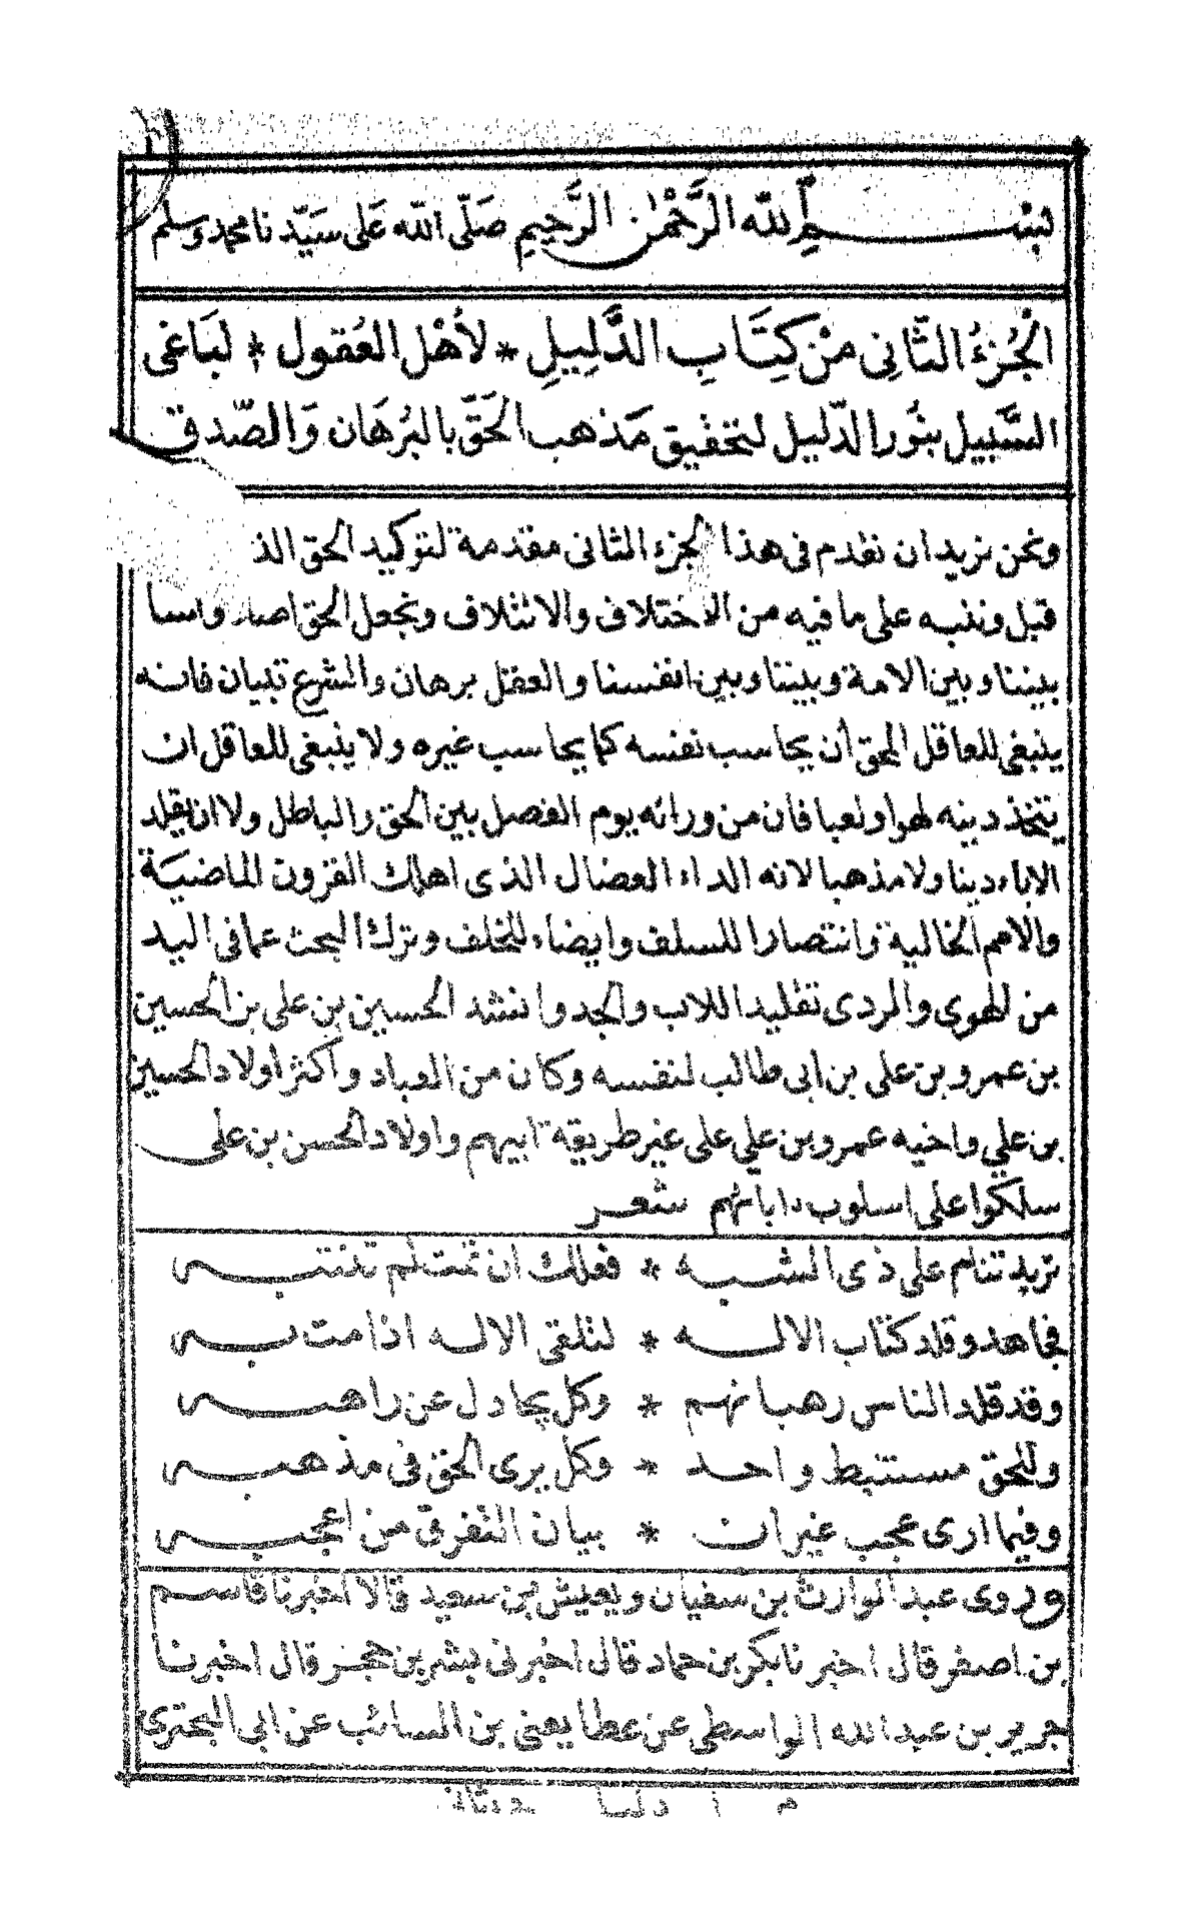 بِسْمِ اللّٰه الرَّحْمٰن الرَّحِيمِ صَلّى اللّه عَلى سَيّدنا محمد وسلم
الْجُزءُ الثّانِى مِنْ كِتَابِ الدَّلِيلِ * لأهْل العُقول * لبَاغى
السَّبيل بنُور الدّليل لتحقيق مَذهب الحَقّ بالبُرهَان وَالصّدق
ونحن نريد ان نقدم فى هذا الجزء الثانى مقدمة لتوكيد الحق الذ
قبل وننبه على ما فيه من الاختلاف والائتلاف ونجعل الحق اصلا واسا
بيننا وبين الامة وبيننا وبين انفسنا والعقل برهان والشرع تبيان فانه
ينبغى للعاقل المحق أن يحاسب نفسه كما يحاسب غيره ولا ينبغى للعاقل ان
يتخذ دينه لهوا ولعبا فان من ورائه يوم الفصل بين الحق والباطل ولا ان يقلد
الاباء دينا ولا مذهبا لانه الداء العضال الذى اهلك القرون الماضيَة
والامم الخالية وانتصارا للسلف وايضاء للخلف وترك البحث عما فى اليد
من الهوى والردى تقليدا للاب والجد وانشد الحسين بن على بن الحسين
بن عمرو بن على بن ابى طالب لنفسه وكان من العباد واكثر اولاد الحسين
بن علي واخيه عمرو بن علي على غير طريقة ابيهم واولاد الحسن بن على
سلكوا على اسلوب اباٸهم شعر
تريد تنام على ذى الشبه * فعلك ان نمت لم تنتبه
فجاهد وقلد كتاب الاله * لتلقى الاله اذا مت به
وقد قلد الناس رهبانهم * وكل يجادل عن راهبه
وللحق مستنبط واحد * وكل يرى الحق فى مذهبه
وفيما ارى عجب غير ان * بيان التفرق من اعجبه
وروى عبد الوارث بن سفيان ويعيش بن سعيد قالا اخبرنا قاسم
بن اصفر قال اخبرنا بكر بن حماد قال اخبرنى بشر بن حجر قال اخبرنا
جرير بن عبد الله الواسطى عن عطا يعنى بن السائب عن ابى البحترى